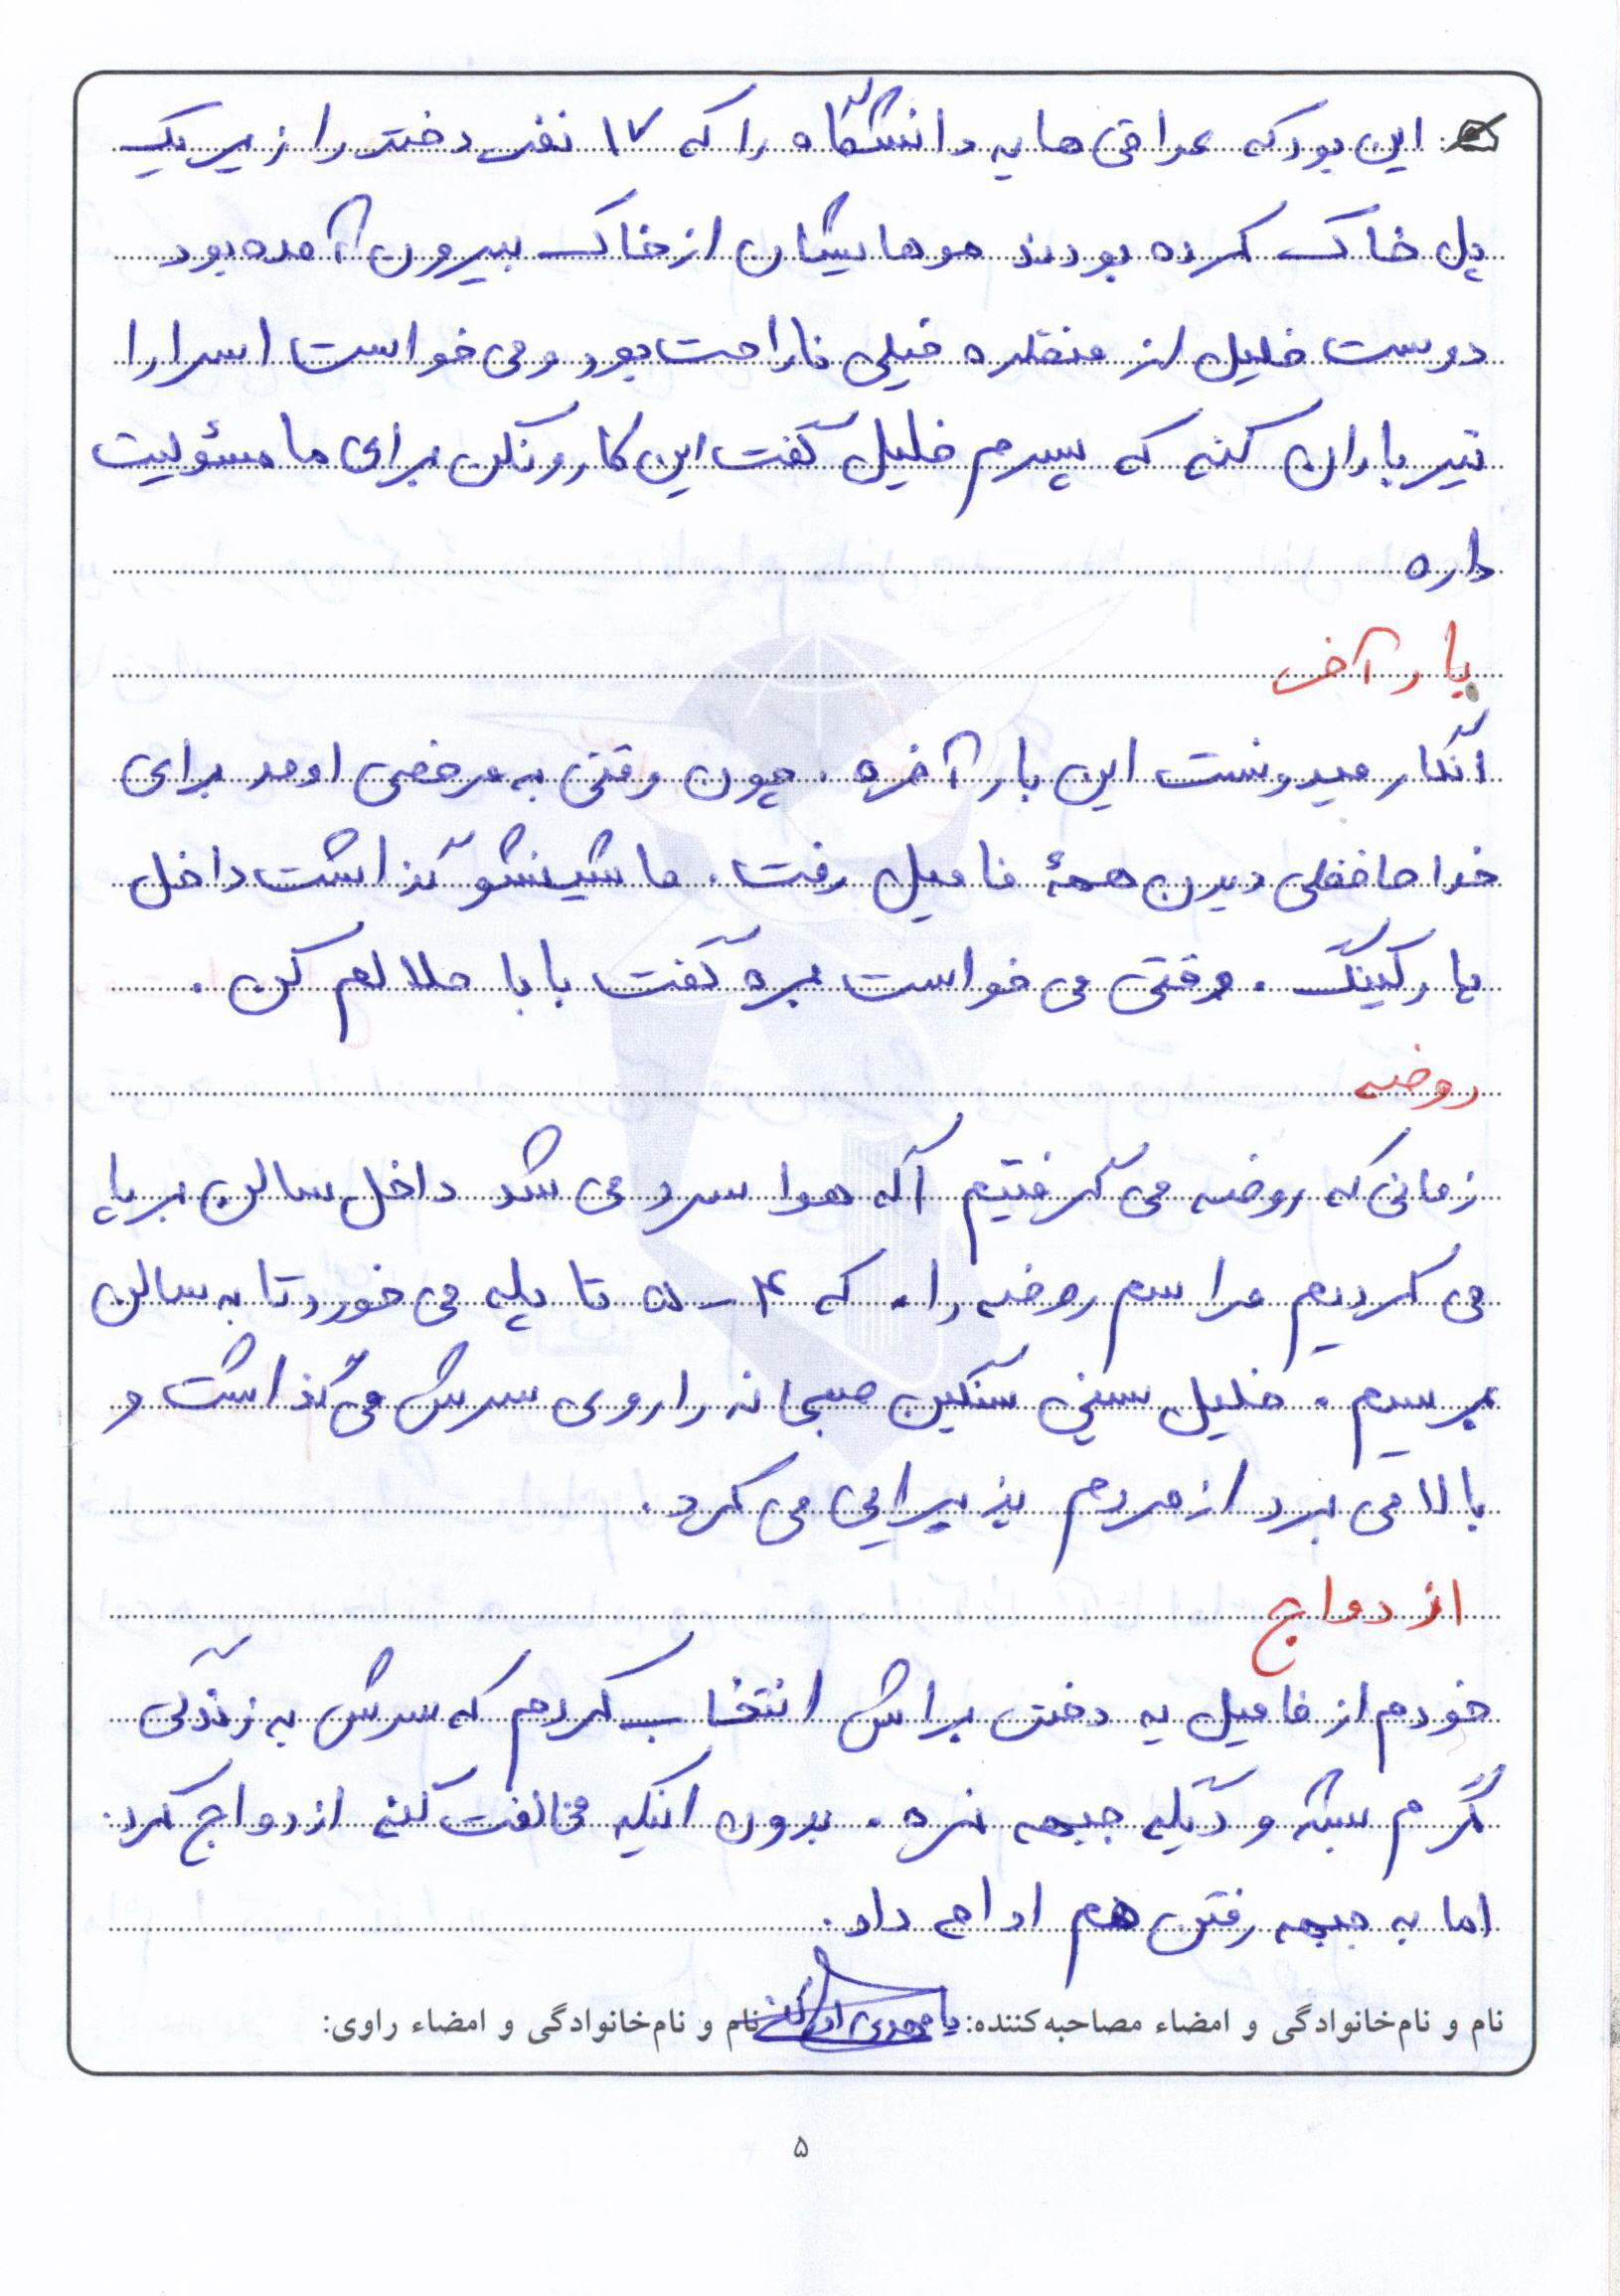 این بود که عراقی ها یه دانشگاه را که ۱۷ نفر دختر را زیر یک
پل خاک کرده بودند موهایشان از خاک بیرون آمده بود
دوست خلیل از منظره خیلی ناراحت بود و می خواست اسرا را
تیر باران کنه که پسرم خلیل گفت این کارو نکن برای ما مسئولیت
داره
بار آخر
انگار میدونست این بار آخره. چون وقتی به مرخصی اومد برای
خداحافظی دیدن همهٔ فامیل رفت. ماشینشو گذاشت داخل
پارکینگ. وقتی می خواست بره گفت بابا حلالم کن.
روضه
زمانی که روضه می گرفتیم اگه هوا سرد می شد داخل سالن برپا
می کردیم مراسم روضه را. که ۴-۵ تا پله می خورد تا به سالن
برسیم. خلیل سینی سنگین صبحانه را روی سرش می گذاشت و
بالا می برد از مردم پذیرایی می کرد.
ازدواج
خودم از فامیل یه دختر براش انتخاب کردم که سرش به زندگی
گرم بشه و دیگه جبهه نره. بدون اینکه مخالفت کنه ازدواج کرد.
اما به جبهه رفتن هم ادامه داد.
نام و نام‌خانوادگی و امضاء مصاحبه‌کننده: نام و نام‌خانوادگی و امضاء راوی:
۵